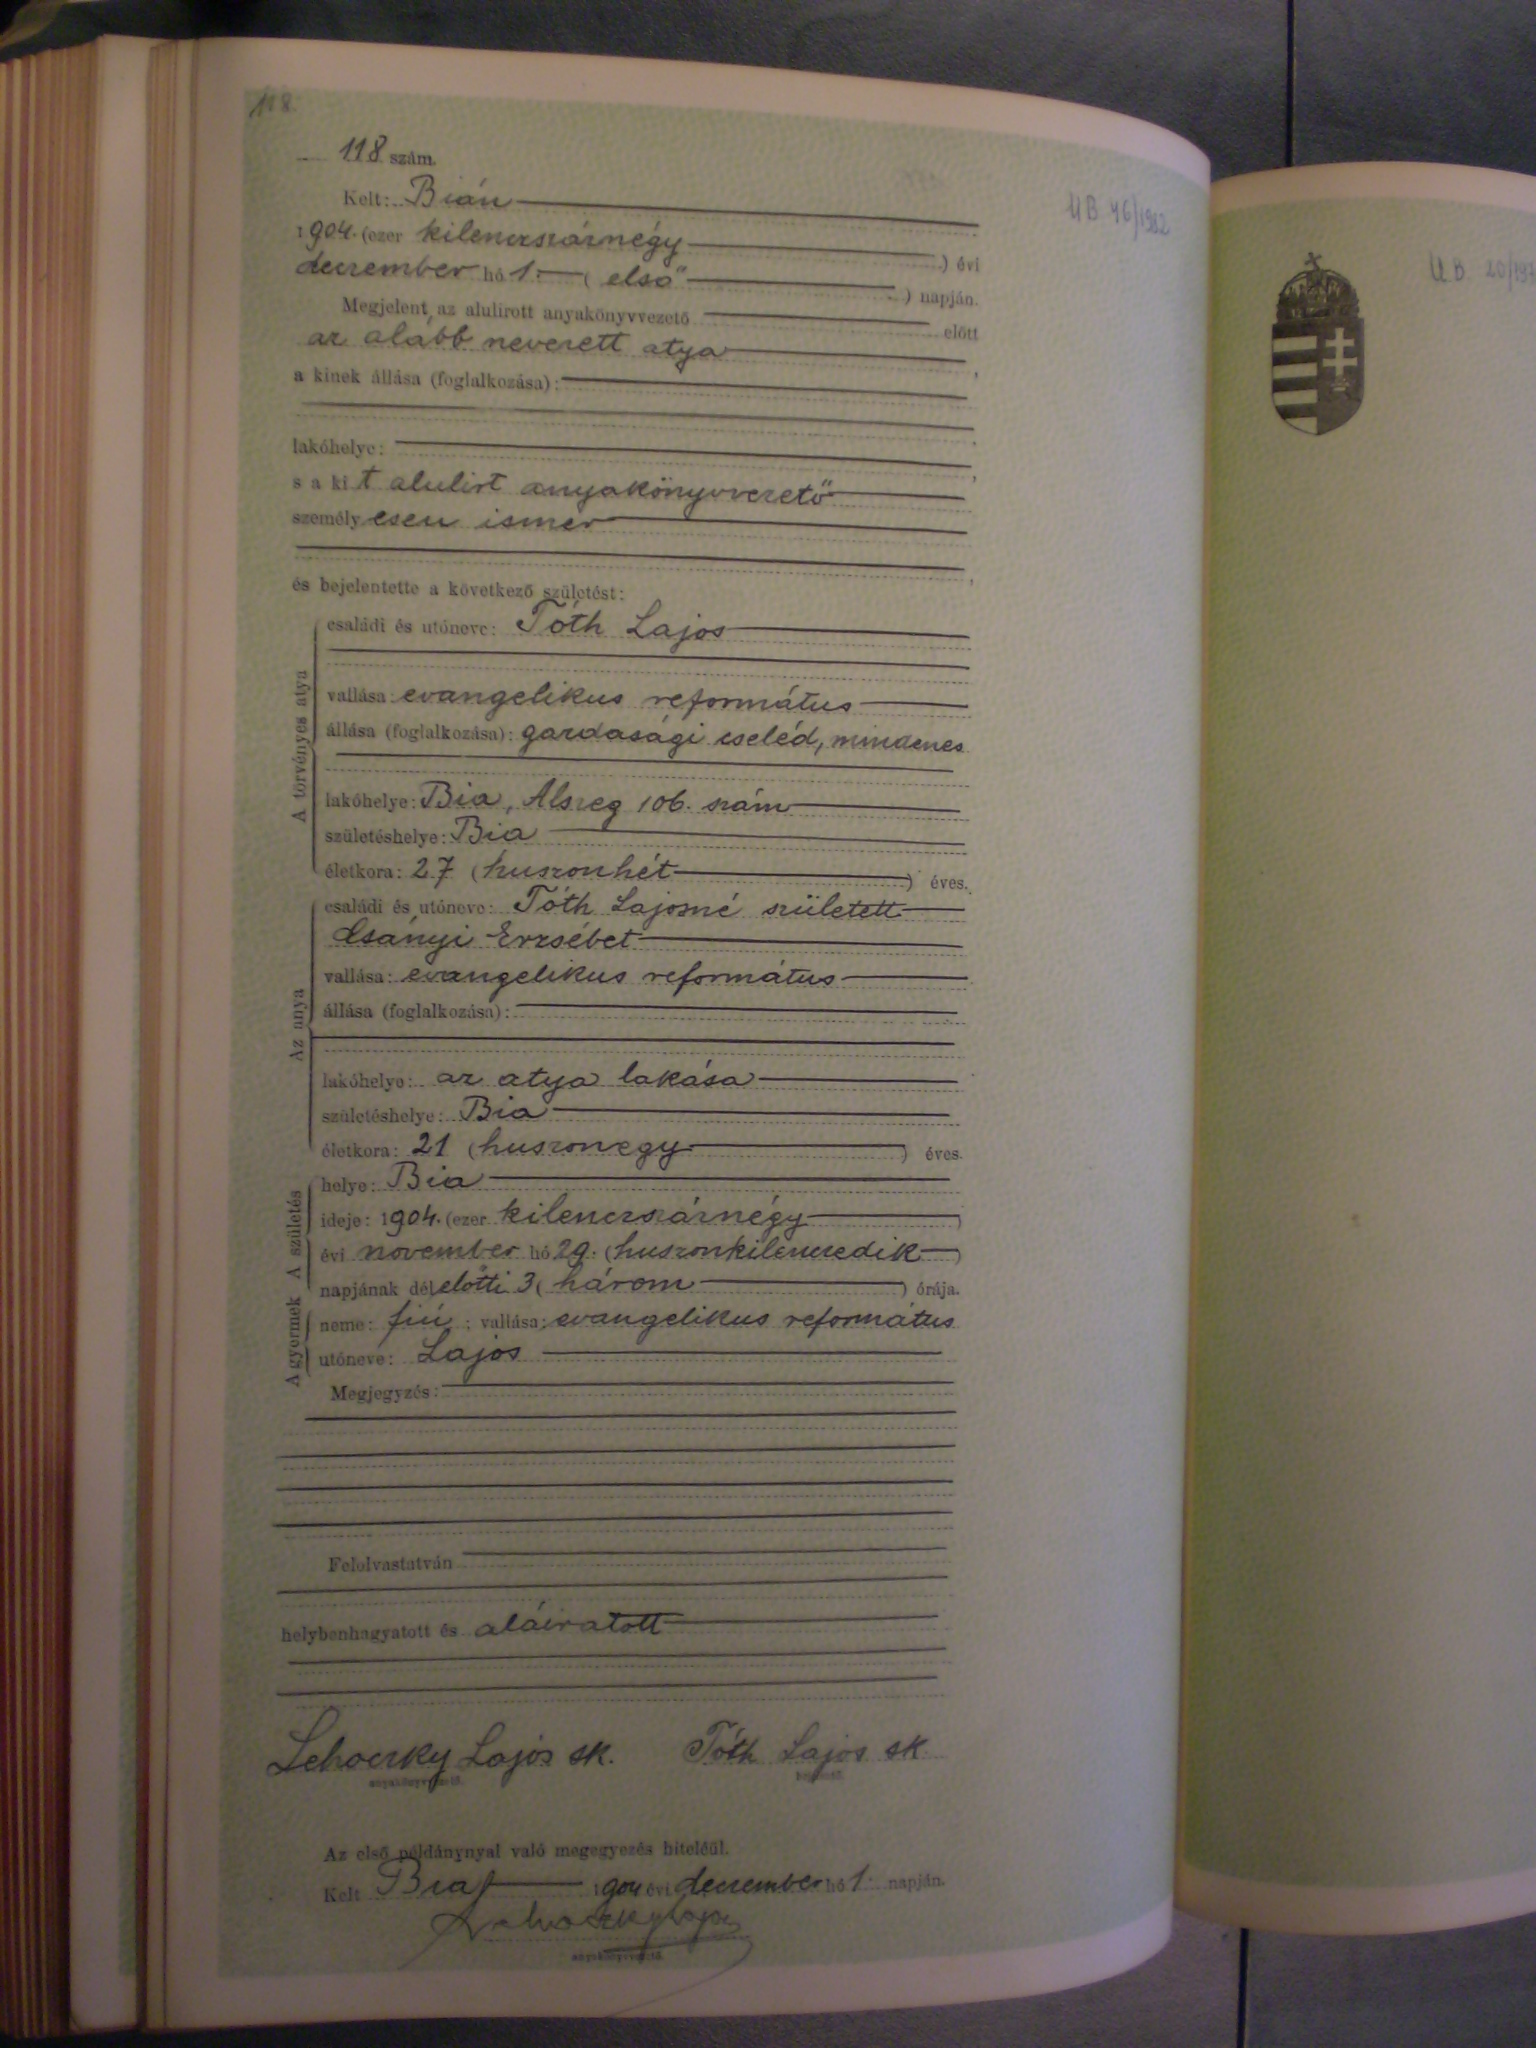 118
118 szám.
U B 46/1982
Kelt: Bián
1904. (ezer kilenczszáznégy ) évi
deczember hó 1. ( első ) napján.
Megjelent az alulirott anyakönyvvezető előtt
az alább nevezett atya ,
a kinek állása (foglalkozása):
lakóhelye:
s a kit alulirt anyakönyvvezető
személyesen ismer
és bejelentette a következő születést:
A törvényes atya
családi és utóneve: Tóth Lajos
vallása: evangelikus református
állása (foglalkozása): gazdasági cseléd, mindenes
lakóhelye: Bia, Alszeg 106. szám
születéshelye: Bia
életkora: 27 (huszonhét ) éves.
Az anya
családi és utóneve: Tóth Lajosné született
Csányi Erzsébet
vallása: evangelikus református
állása (foglalkozása):
lakóhelye: az atya lakása
születéshelye: Bia
életkora: 21 (huszonegy ) éves.
A születés
helye: Bia
ideje: 1904. (ezer kilenczszáznégy )
évi november hó 29. (huszonkilenczedik )
napjának délelőtti 3 ( három ) órája.
A gyermek
neme: fiú ; vallása: evangelikus református
utóneve: Lajos
Megjegyzés:
Felolvastatván
helybenhagyatott és aláiratott
Lehoczky Lajos sk. Tóth Lajos sk
anyakönyvvezető. bejelentő.
Az első példánynyal való megegyezés hiteléül.
Kelt Bia 1904 évi deczember hó 1. napján.
Lehoczky Lajos
anyakönyvvezető.
U B 20/197